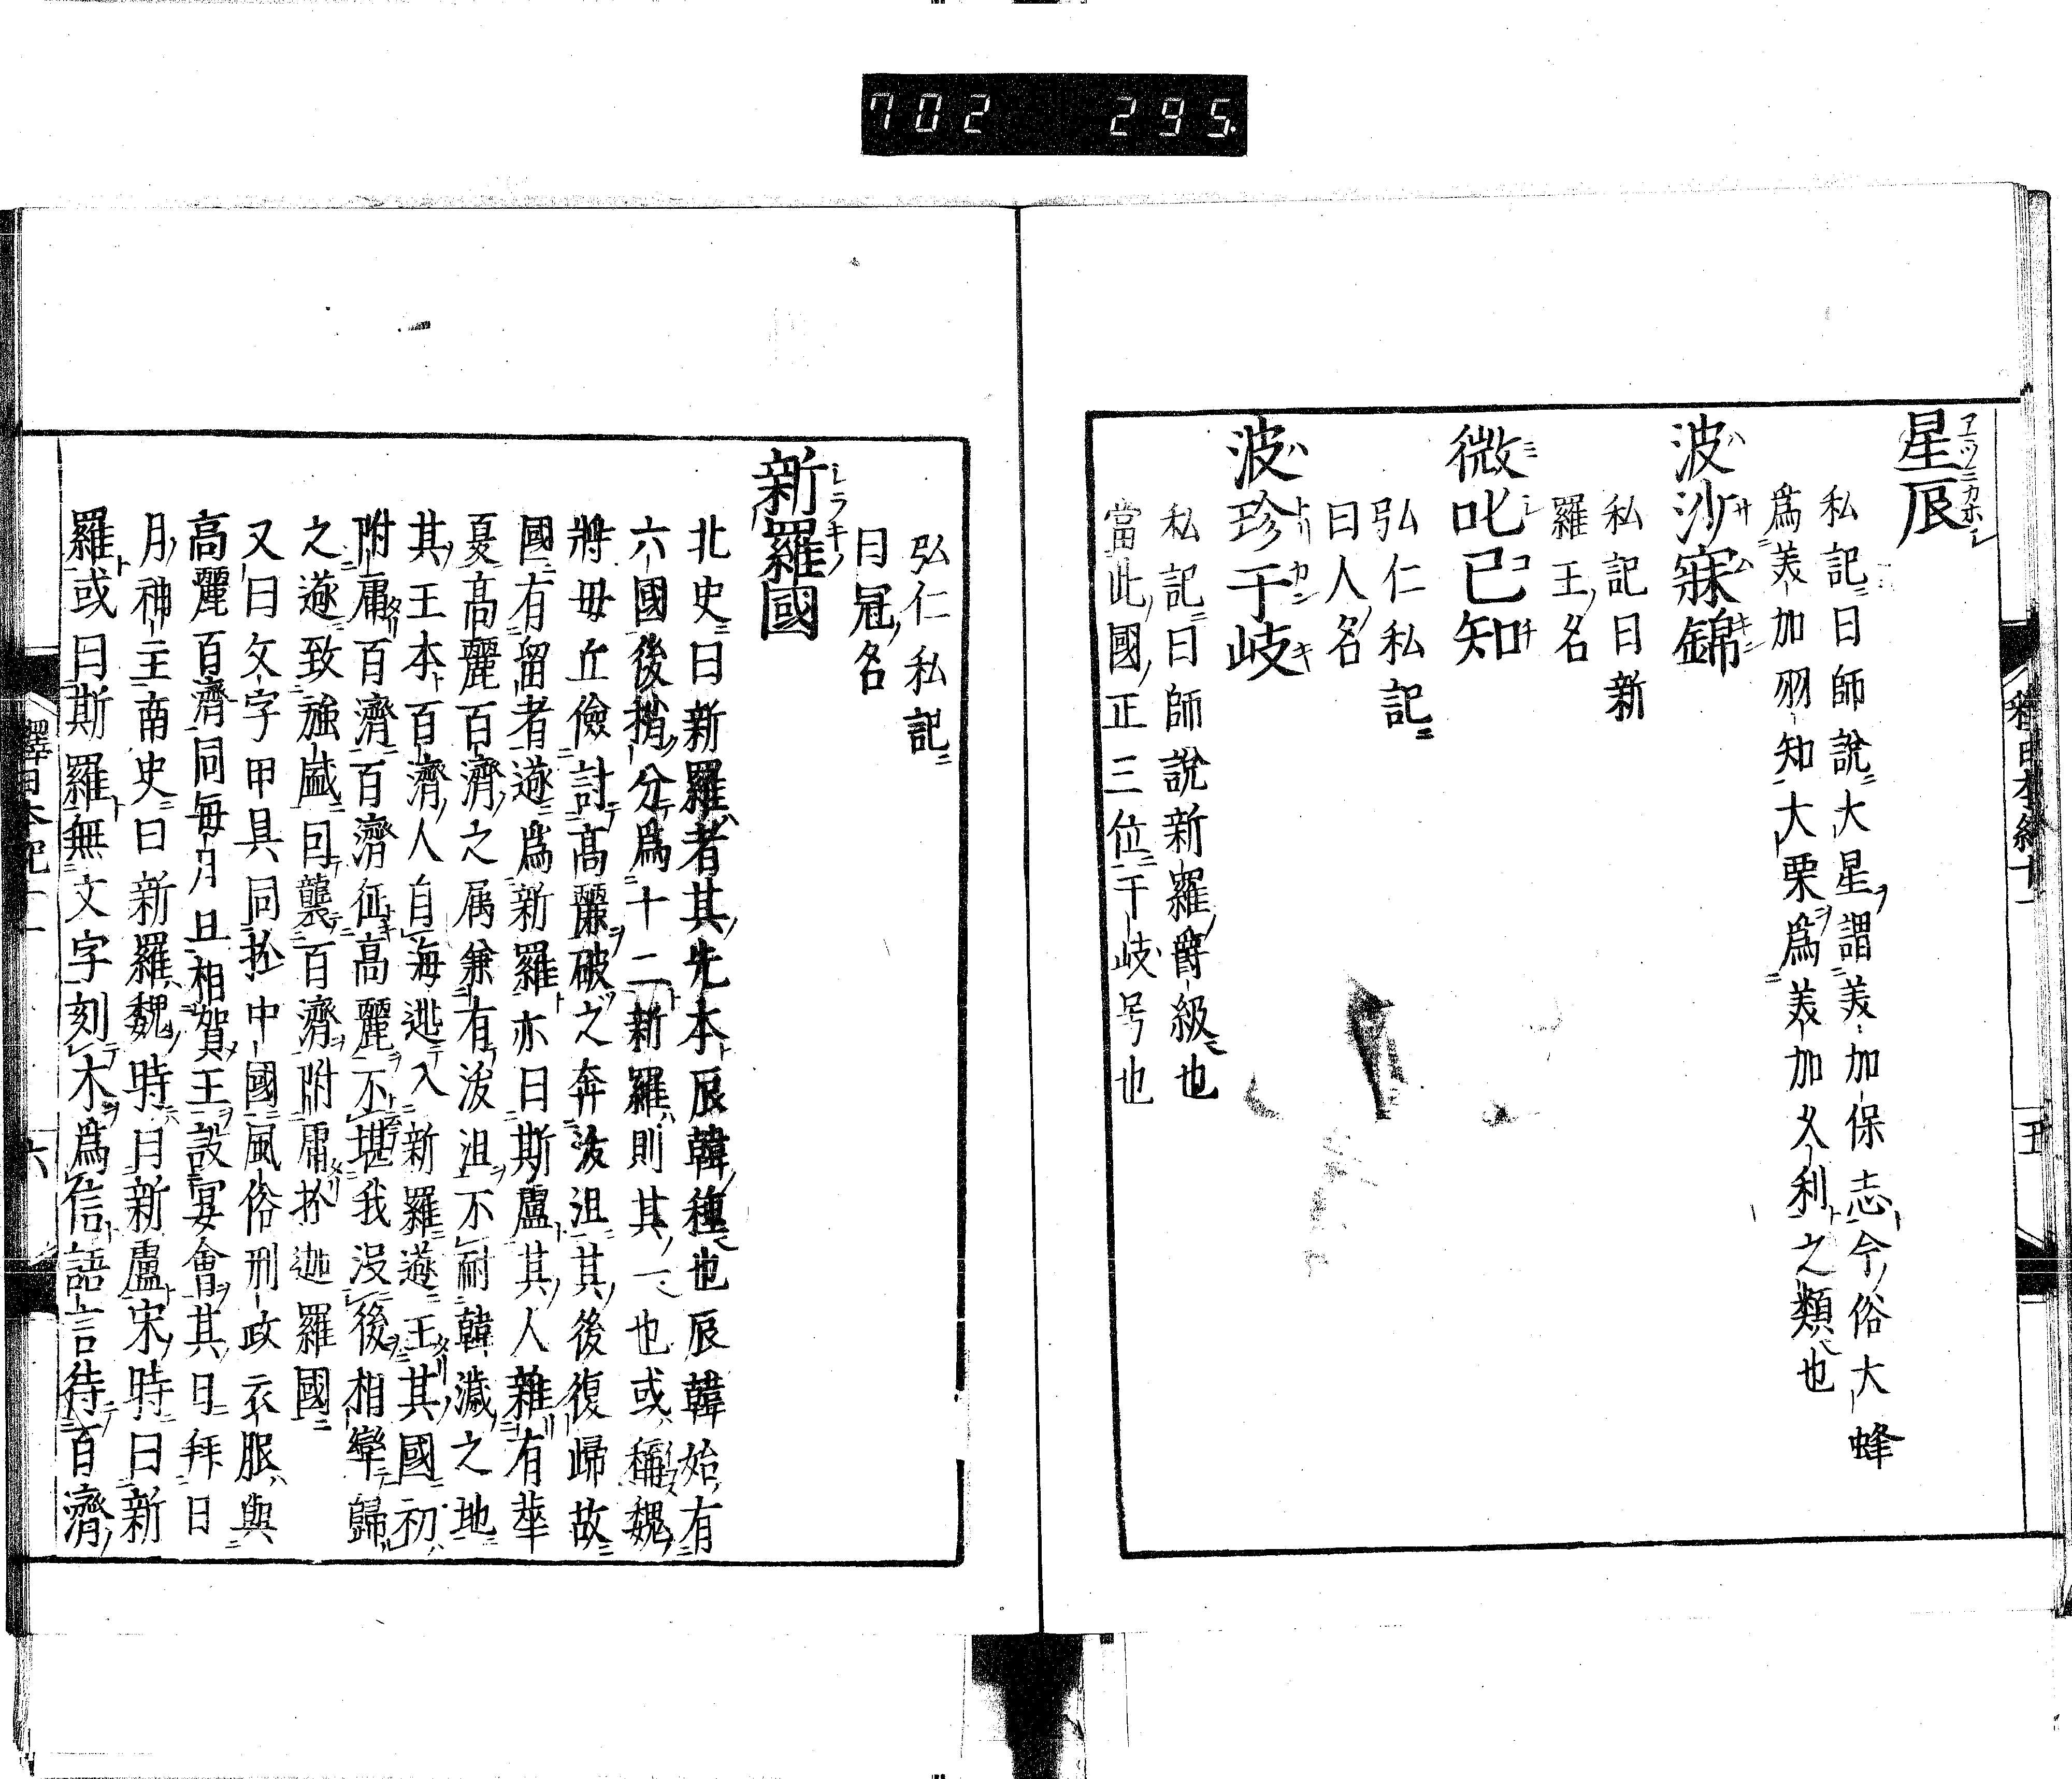 702 295
星辰
私記曰師說大星謂美加保志今俗大蜂
爲美加羽知大栗爲美加久利之類也
波沙寐錦
私記曰新
羅王名
微叱已知
弘仁私記
曰人名
波珍干岐
私記曰師說新羅爵級也
當此國正三位干岐号也
釋日本紀十一
五
弘仁私記
曰冠名
新羅國
北史曰新羅者其先本辰韓種也辰韓始有
六國後稍分爲十二新羅則其一也或稱魏
將毋丘儉討高麗破之奔沃沮其後復歸故
國有留者遂爲新羅亦曰斯盧其人雜有華
夏高麗百濟之属兼有沃沮不耐韓濊之地
其王本百濟人自海逃入新羅遂王其國初
附庸百濟百濟征高麗不堪我没後相率歸
之遂致強盛囙襲百濟附庸扵迦羅國
又曰文字甲具同扵中國風俗刑政衣服與
高麗百濟同每月旦相賀王設宴會其日拜日
月神主南史曰新羅魏時曰新盧宋時曰新
羅或曰斯羅無文字刻木爲信語言待百濟
釋日本紀十一
六